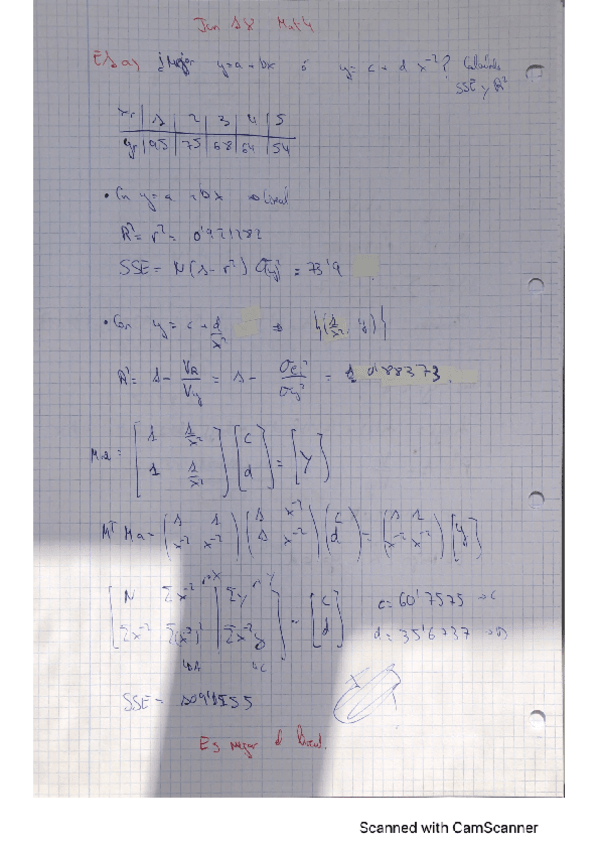 Jan 18 Mat 4
E1 a) ¿Mejor y=a+bx ó y= c+ d x⁻²? Calculando
SSE y R²
xᵢ | 1 | 2 | 3 | 4 | 5
yᵢ | 95 | 75 | 68 | 64 | 54
• Con y= a + bx
R²= r²=
SSE= N(1-r²) σy² = 73'9
• Con y= c+ d/x² ⇒ {(1/x², y)}
R²= 1- VR/Vy = 1- σe²/σy² = 0'88373
[1 1/x² 1 1/x²] [c d] = [y]
Mᵀ Ma= (1 1 x⁻² x⁻²) (1 x⁻² 1 x⁻²) (c d) = (1 1 x⁻² x⁻²) [y]
[N Σx⁻² | Σy
Σx⁻² Σ(x⁻²)² | Σx⁻²y] = [c d]
c= 60'7575
d= 35'6737
SSE=
Es mejor el lineal.
Scanned with CamScanner